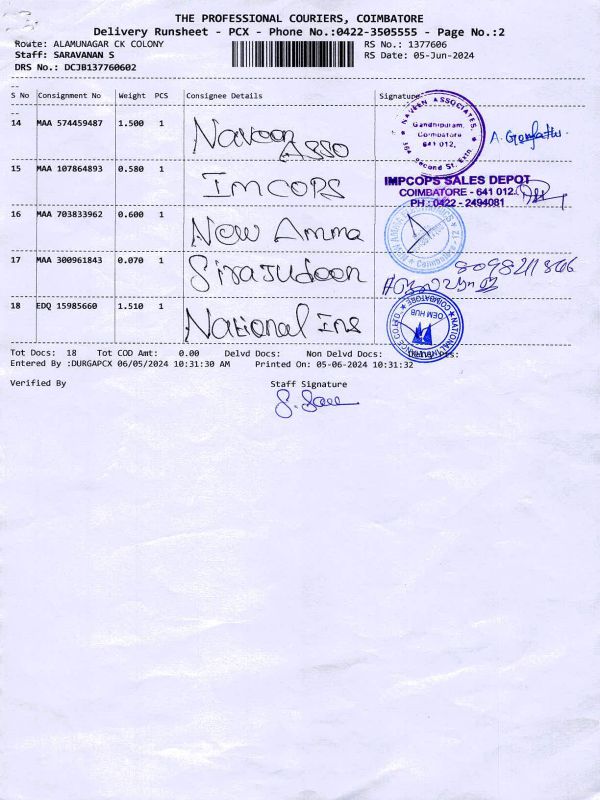 THE PROFESSIONAL COURIERS, COIMBATORE
Delivery Runsheet - PCX - Phone No.:0422-3505555 - Page No.:2
Route: ALAMUNAGAR CK COLONY RS No.: 1377606
Staff: SARAVANAN S RS Date: 05-Jun-2024
DRS No.: DCJB137760602
S No Consignment No Weight PCS Consignee Details Signature
14 MAA 574459487 1.500 1 Naveen Asso
NAVEEN ASSOCIATES,
364 Second St. Extn
Gandhipuram,
Coimbatore
641 012.
15 MAA 107864893 0.580 1 IMCOPS
IMPCOPS SALES DEPOT
COIMBATORE - 641 012.
PH : 0422 - 2494081
16 MAA 703833962 0.600 1 New Amma
Coimbatore - 12
17 MAA 300961843 0.070 1 Sirajudeen
18 EDQ 15985660 1.510 1 National Ins
COIMBATORE
OEM HUB
NATIONAL
Tot Docs: 18 Tot COD Amt: 0.00 Delvd Docs: Non Delvd Docs:
Entered By :DURGAPCX 06/05/2024 10:31:30 AM Printed On: 05-06-2024 10:31:32
Verified By Staff Signature